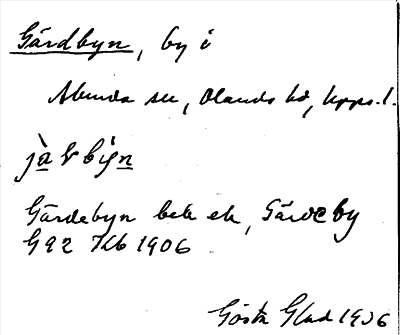 Gärdbyn, by i
Alunda sn, Olands hd, Upps. l.
jàṛbẏn
Gärdebyn bek ek, Gärdeby
G92 Kb 1906
Gösta Glad 1936